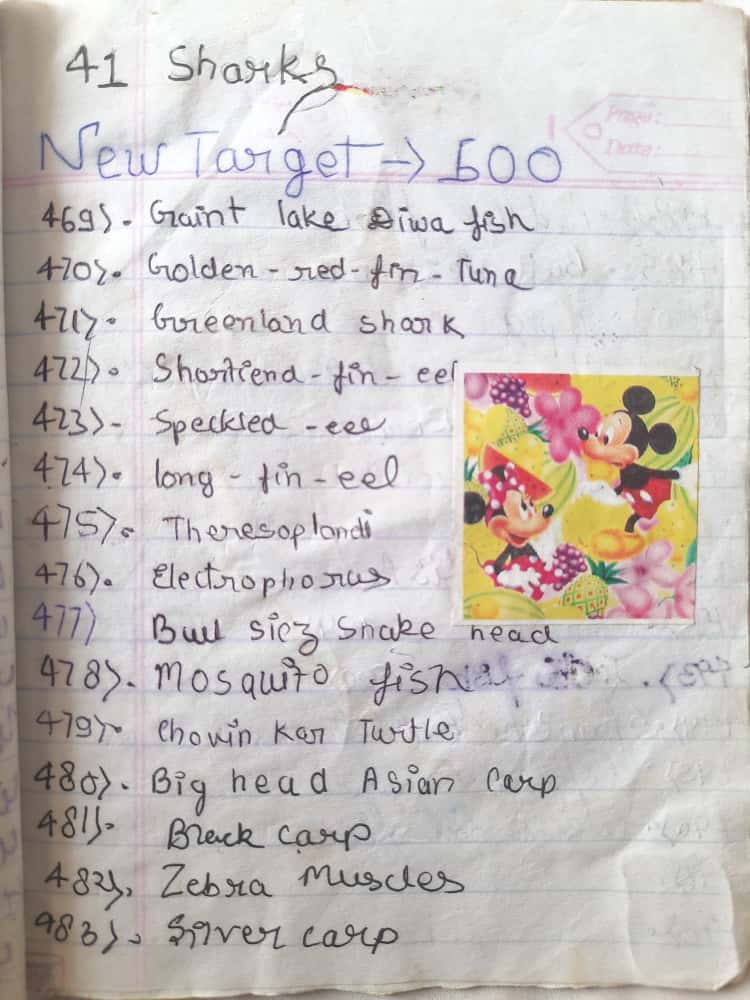 41 Sharks
New Target → 500
Page:
Date:
469). Graint lake Diwa fish
470). Golden - red - fin - Tuna
471). Greenland shark
472). Shortiend - fin - eel
473)- Speckled - eel
474). long - fin - eel
475). Theresoplandi
476). Electrophorus
477) Bull siez Snake head
478). Mosquito fish
479). Chowin Kar Turtle
480). Big head Asian Carp
481). Black carp
482). Zebra Muscles
483). Silver carp